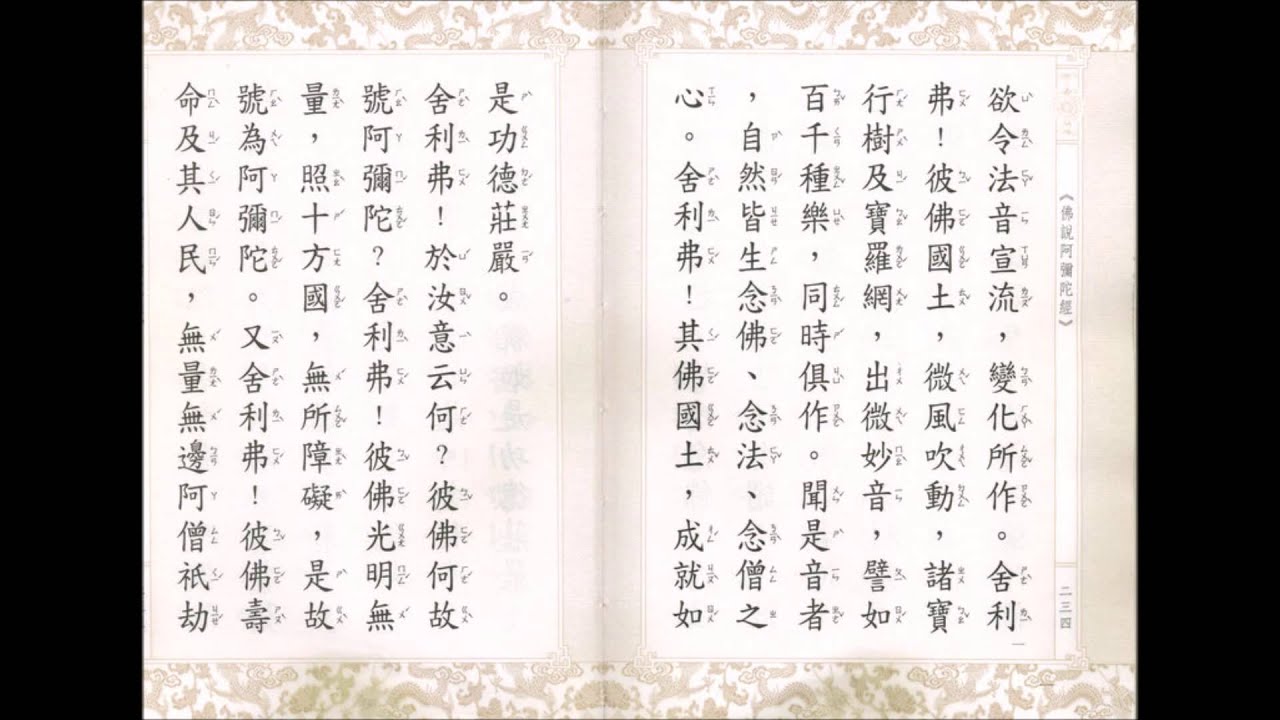 《佛說阿彌陀經》
二三四
欲令法音宣流，變化所作。舍利
弗！彼佛國土，微風吹動，諸寶
行樹及寶羅網，出微妙音，譬如
百千種樂，同時俱作。聞是音者
，自然皆生念佛、念法、念僧之
心。舍利弗！其佛國土，成就如
是功德莊嚴。
舍利弗！於汝意云何？彼佛何故
號阿彌陀？舍利弗！彼佛光明無
量，照十方國，無所障礙，是故
號為阿彌陀。又舍利弗！彼佛壽
命及其人民，無量無邊阿僧祇劫